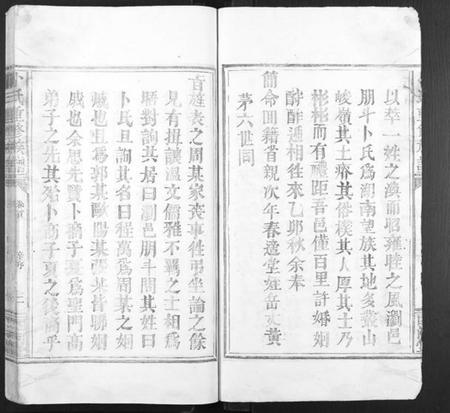 以萃一姓之渙而昭雍睦之風瀏邑
朋斗卜氏爲湖南望族其地多叢山
峻嶺其土瘠其俗樸其人厚其士乃
彬彬而有禮距吾邑僅百里許婚姻
酬酢遞相往來乙卯秋余奉
簡命回籍省親次年春造堂姪岳水黃
茅六世同
旨旌表之周某家喪事徃弔坐論之餘
見有揖讓溫文儒雅不羈之士相爲
晤對詢其居曰瀏邑朋斗間其姓曰
卜氏且詢其名曰程萬爲周某之姻
戚也且爲郭某歐陽某張某皆聯姻
戚也余思先賢卜商子夏爲聖門高
弟子之先其殆卜商子夏之後裔乎